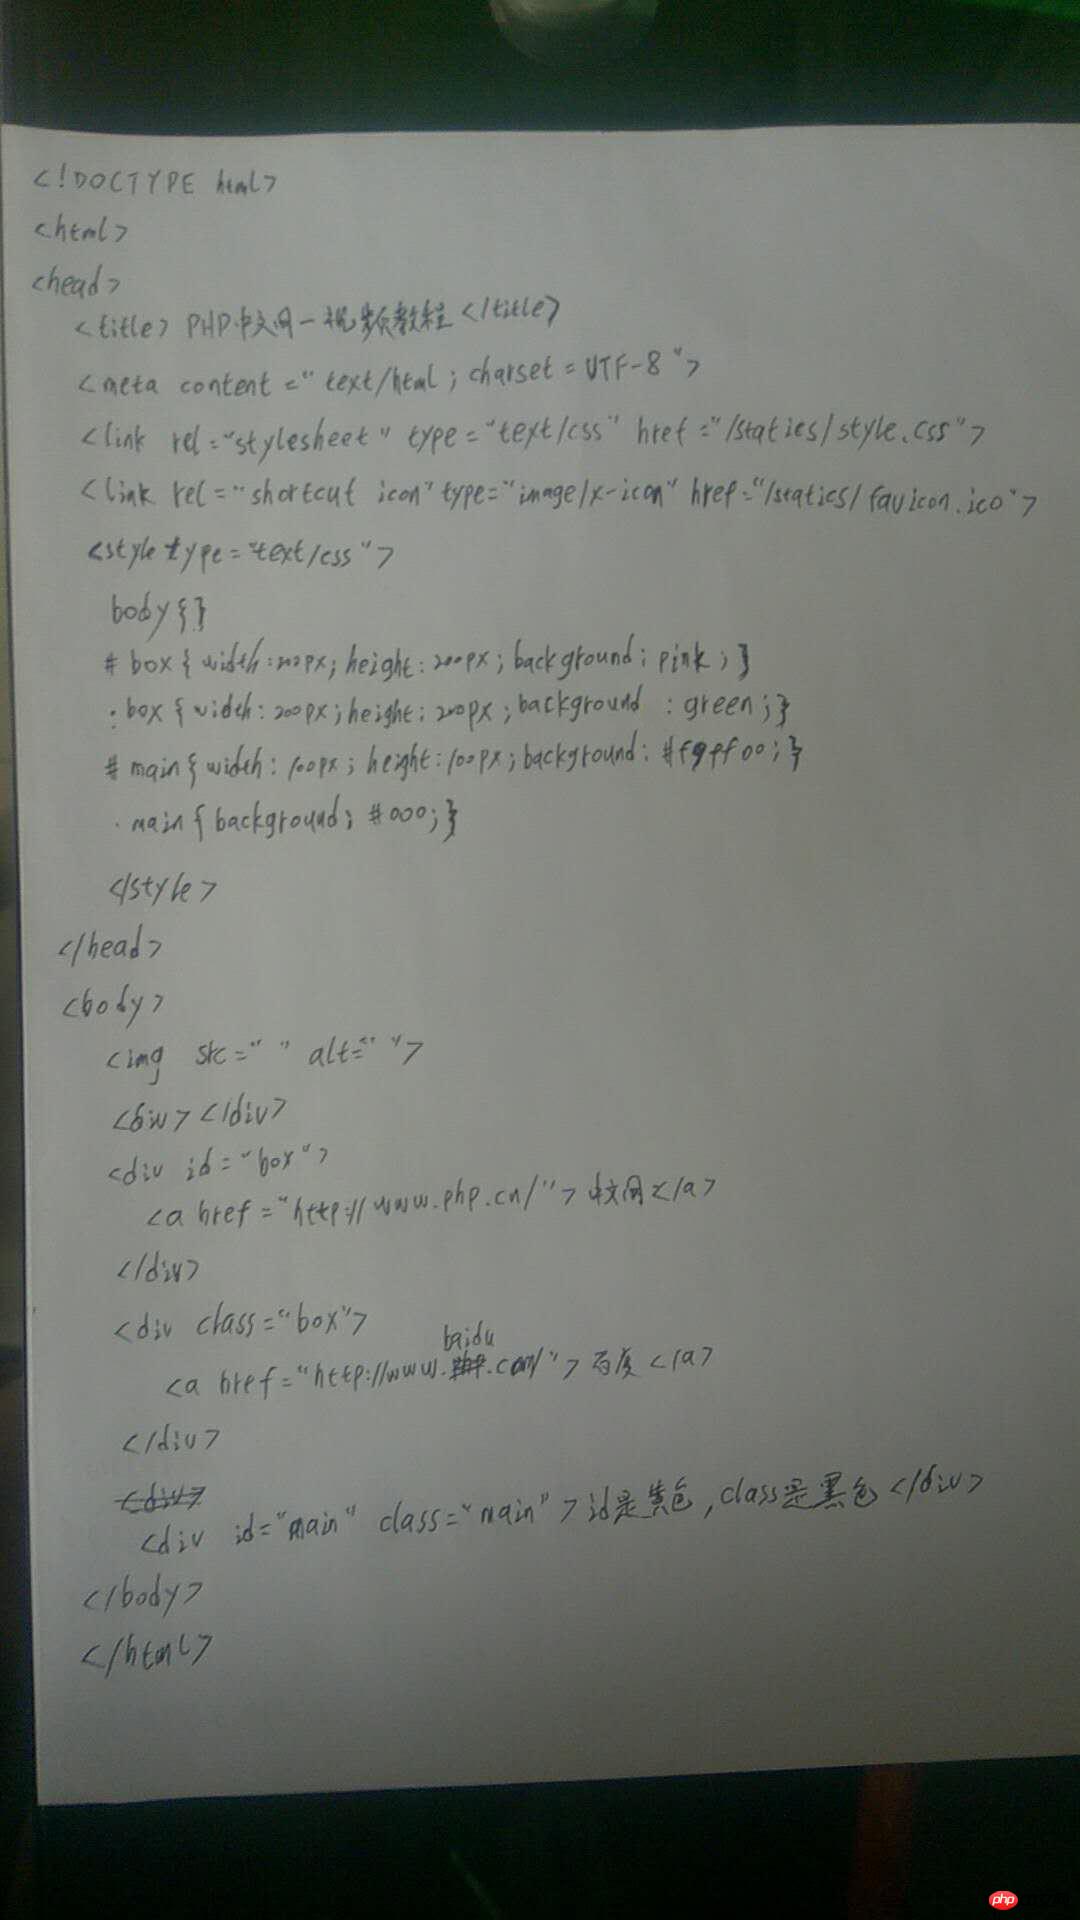 <!DOCTYPE html>
<html>
<head>
<title>PHP中文网-视频教程</title>
<meta content="text/html; charset=UTF-8">
<link rel="stylesheet" type="text/css" href="/statics/style.css">
<link rel="shortcut icon" type="image/x-icon" href="/statics/favicon.ico">
<style type="text/css">
body{}
#box{width:200px;height:200px;background:pink;}
.box{width:200px;height:200px;background:green;}
#main{width:100px;height:100px;background:#f9ff00;}
.main{background:#000;}
</style>
</head>
<body>
<img src=" " alt=" ">
<div></div>
<div id="box">
<a href="http://www.php.cn/">中文网</a>
</div>
<div class="box">
<a href="http://www.baidu.com/">百度</a>
</div>
<div>
<div id="main" class="main">id是黄色,class是黑色</div>
</body>
</html>
php